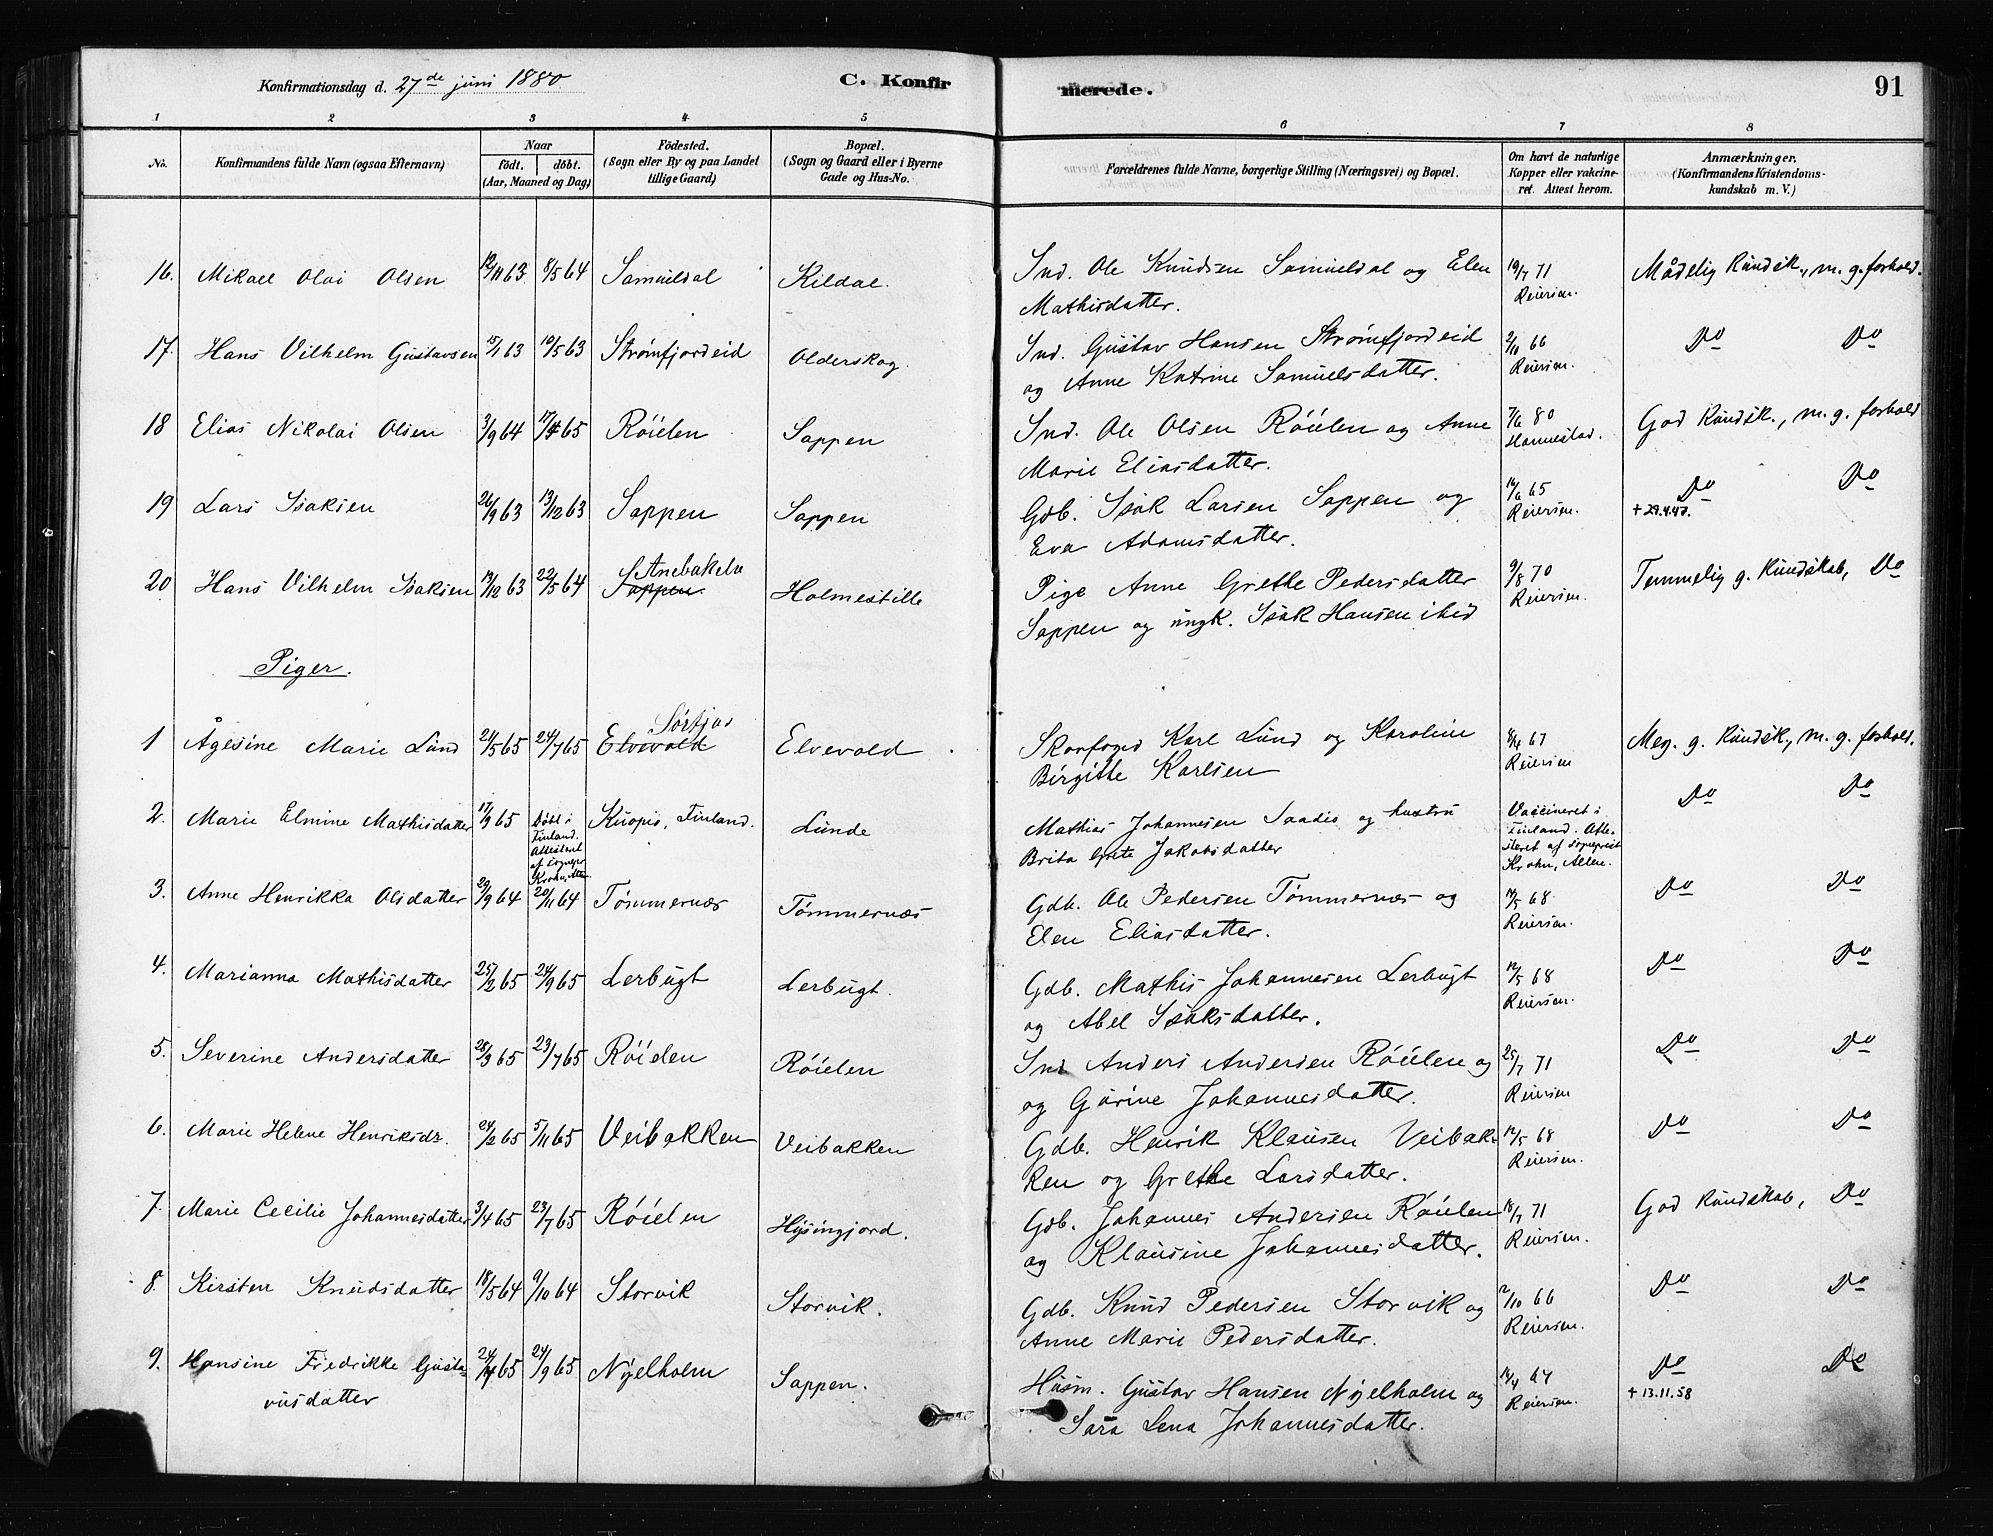 Konfirmationsdag d. 27de juni 1880
C. Konfirmerede.
91
1 2 3 4 5 6 7 8
No.
Konfirmandens fulde Navn (ogsaa Efternavn)
Naar
födt. döbt.
(Aar, Maaned og Dag)
Födested.
(Sogn eller By og paa Landet
tillige Gaard)
Bopæl.
(Sogn og Gaard eller i Byerne
Gade og Hus-No.
Forældrenes fulde Navne, borgerlige Stilling (Næringsvei) og Bopæl.
Om havt de naturlige
Kopper eller vakcine-
ret. Attest herom.
Anmærkninger.
(Konfirmandens Kristendoms-
kundskab m. V.)
16. Mikael Olai Olsen 12/11 63 8/5 64 Samuildal Kildal. Ind. Ole Knudsen Samueldal og Elen 19/7 71 Mådelig Kundsk., m. g. forhold.
Mathisdatter. Reiersen.
17. Hans Vilhelm Gustavsen 15/1 63 10/5 63 Strømfjordeid Olderskog. Ind. Gustav Hansen Strømfjordeid 2/10 66 Do Do
og Anne Katrine Samuelsdatter. Reiersen.
18 Elias Nikolai Olsen 3/9 64 17/4 65 Röielen Sappen Ind. Ole Olsen Röielen og Anne 7/6 80 God Kundsk., m. g. forhold
Marie Eliasdatter. Hannestad.
19 Lars Isaksen 26/9 63 13/12 63 Sappen Sappen Gdb. Isak Larsen Sappen og 14/6 65 Do Do
Eva Adamsdatter. Reiersen. + 29.4.47.
20 Hans Vilhelm Isaksen 19/12 63 22/5 64 Sappen. Holmestille Pige Anne Grethe Pedersdatter 9/8 70 Temmelig g. Kundskab, Do
Sappen og ungk. Isak Hansen ibid Reiersen.
Piger.
Sörfjor
1 Ågesine Marie Lund 21/5 65 24/7 65 Elvevold Elvevold Skovfoged Karl Lund og Karoline 8/4 67 Meg. g. Kundsk., m. g. forhold.
Birgitte Karlsen Reiersen
2. Marie Elmine Mathisdatter 17/3 65 Döbt i Finland. Attesteret af sognepr Krohn, Alten Kuopio, Finland. Lunde Mathias Johannesen Saadio og hustru Vaccineret i Do Do
Brita Grete Jakobsdatter Finland. Atte-
steret af sognepræst
Krohn, Alten.
3. Anne Henrikka Olsdatter 29/9 64 20/11 64 Tömmernæs Tömmernæs Gdb. Ole Pedersen Tömmernæs og 12/5 68 Do Do
Elen Eliasdatter. Reiersen.
4. Marianna Mathisdatter 25/2 65 24/9 65 Lerbugt Lerbugt. Gdb. Mathis Johannesen Lerbugt 12/5 68 Do Do
og Abel Isaksdatter. Reiersen.
5. Severine Andersdatter 28/3 65 23/7 65 Röielen Röielen Ind Anders Andersen Röielen og 25/7 71 Do Do
og Gurine Johannesdatter. Reiersen
6. Marie Helene Henriksdr. 24/2 65 5/11 65 Veibakken Veibakken Gdb. Henrik Klausen Veibak- 12/5 68 Do Do
ken og Grethe Larsdatter. Reiersen.
7. Marie Cecilie Johannesdatter 3/4 65 23/7 65 Röielen Hysingjord. Gdb. Johannes Andersen Röielen 18/7 71 God Kundskab, Do
og Klausine Johannesdatter. Reiersen.
8. Kirsten Knudsdatter 18/5 64 9/10 64 Storvik Storvik. Gdb. Knud Pedersen Storvik og 2/10 66 Do Do
Anne Marie Pedersdatter. Reiersen.
9. Hansine Fredrikke Gusta- 24/4 65 24/9 65 Nyelholm Sappen. Husm. Gustav Hansen Nyelholm og 64 Do Do
vusdatter Sara Lena Johannesdatter. Reiersen. + 13.11.58